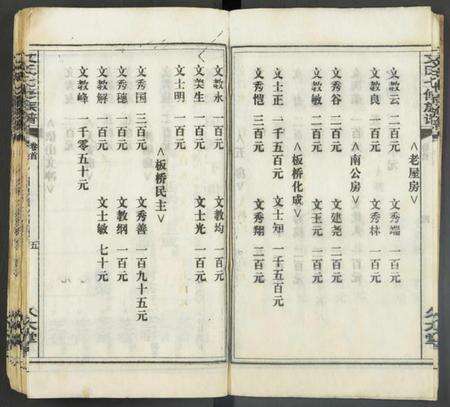 ∧老屋房∨
文教云 二百元 文秀端 一百元
文教良 一百元 文秀林 一百元
∧南公房∨
文秀谷 二百元 文建尧 二百元
文教敏 二百元 文玉元 一百元
∧板桥化成∨
文士正 一千五百元 文士知 一千五百元
文秀恺 三百元 文秀翔 二百元
文教永 一百元 文教均 一百元
文美生 一百元 文士光 一百元
文士明 一百元
∧板桥民主∨
文秀国 三百元 文秀善 一百九十五元
文秀德 一百元 文教纲 一百元
文教解 一百元 文士敏 七十元
文教峰 一千零五十元
卷首
五